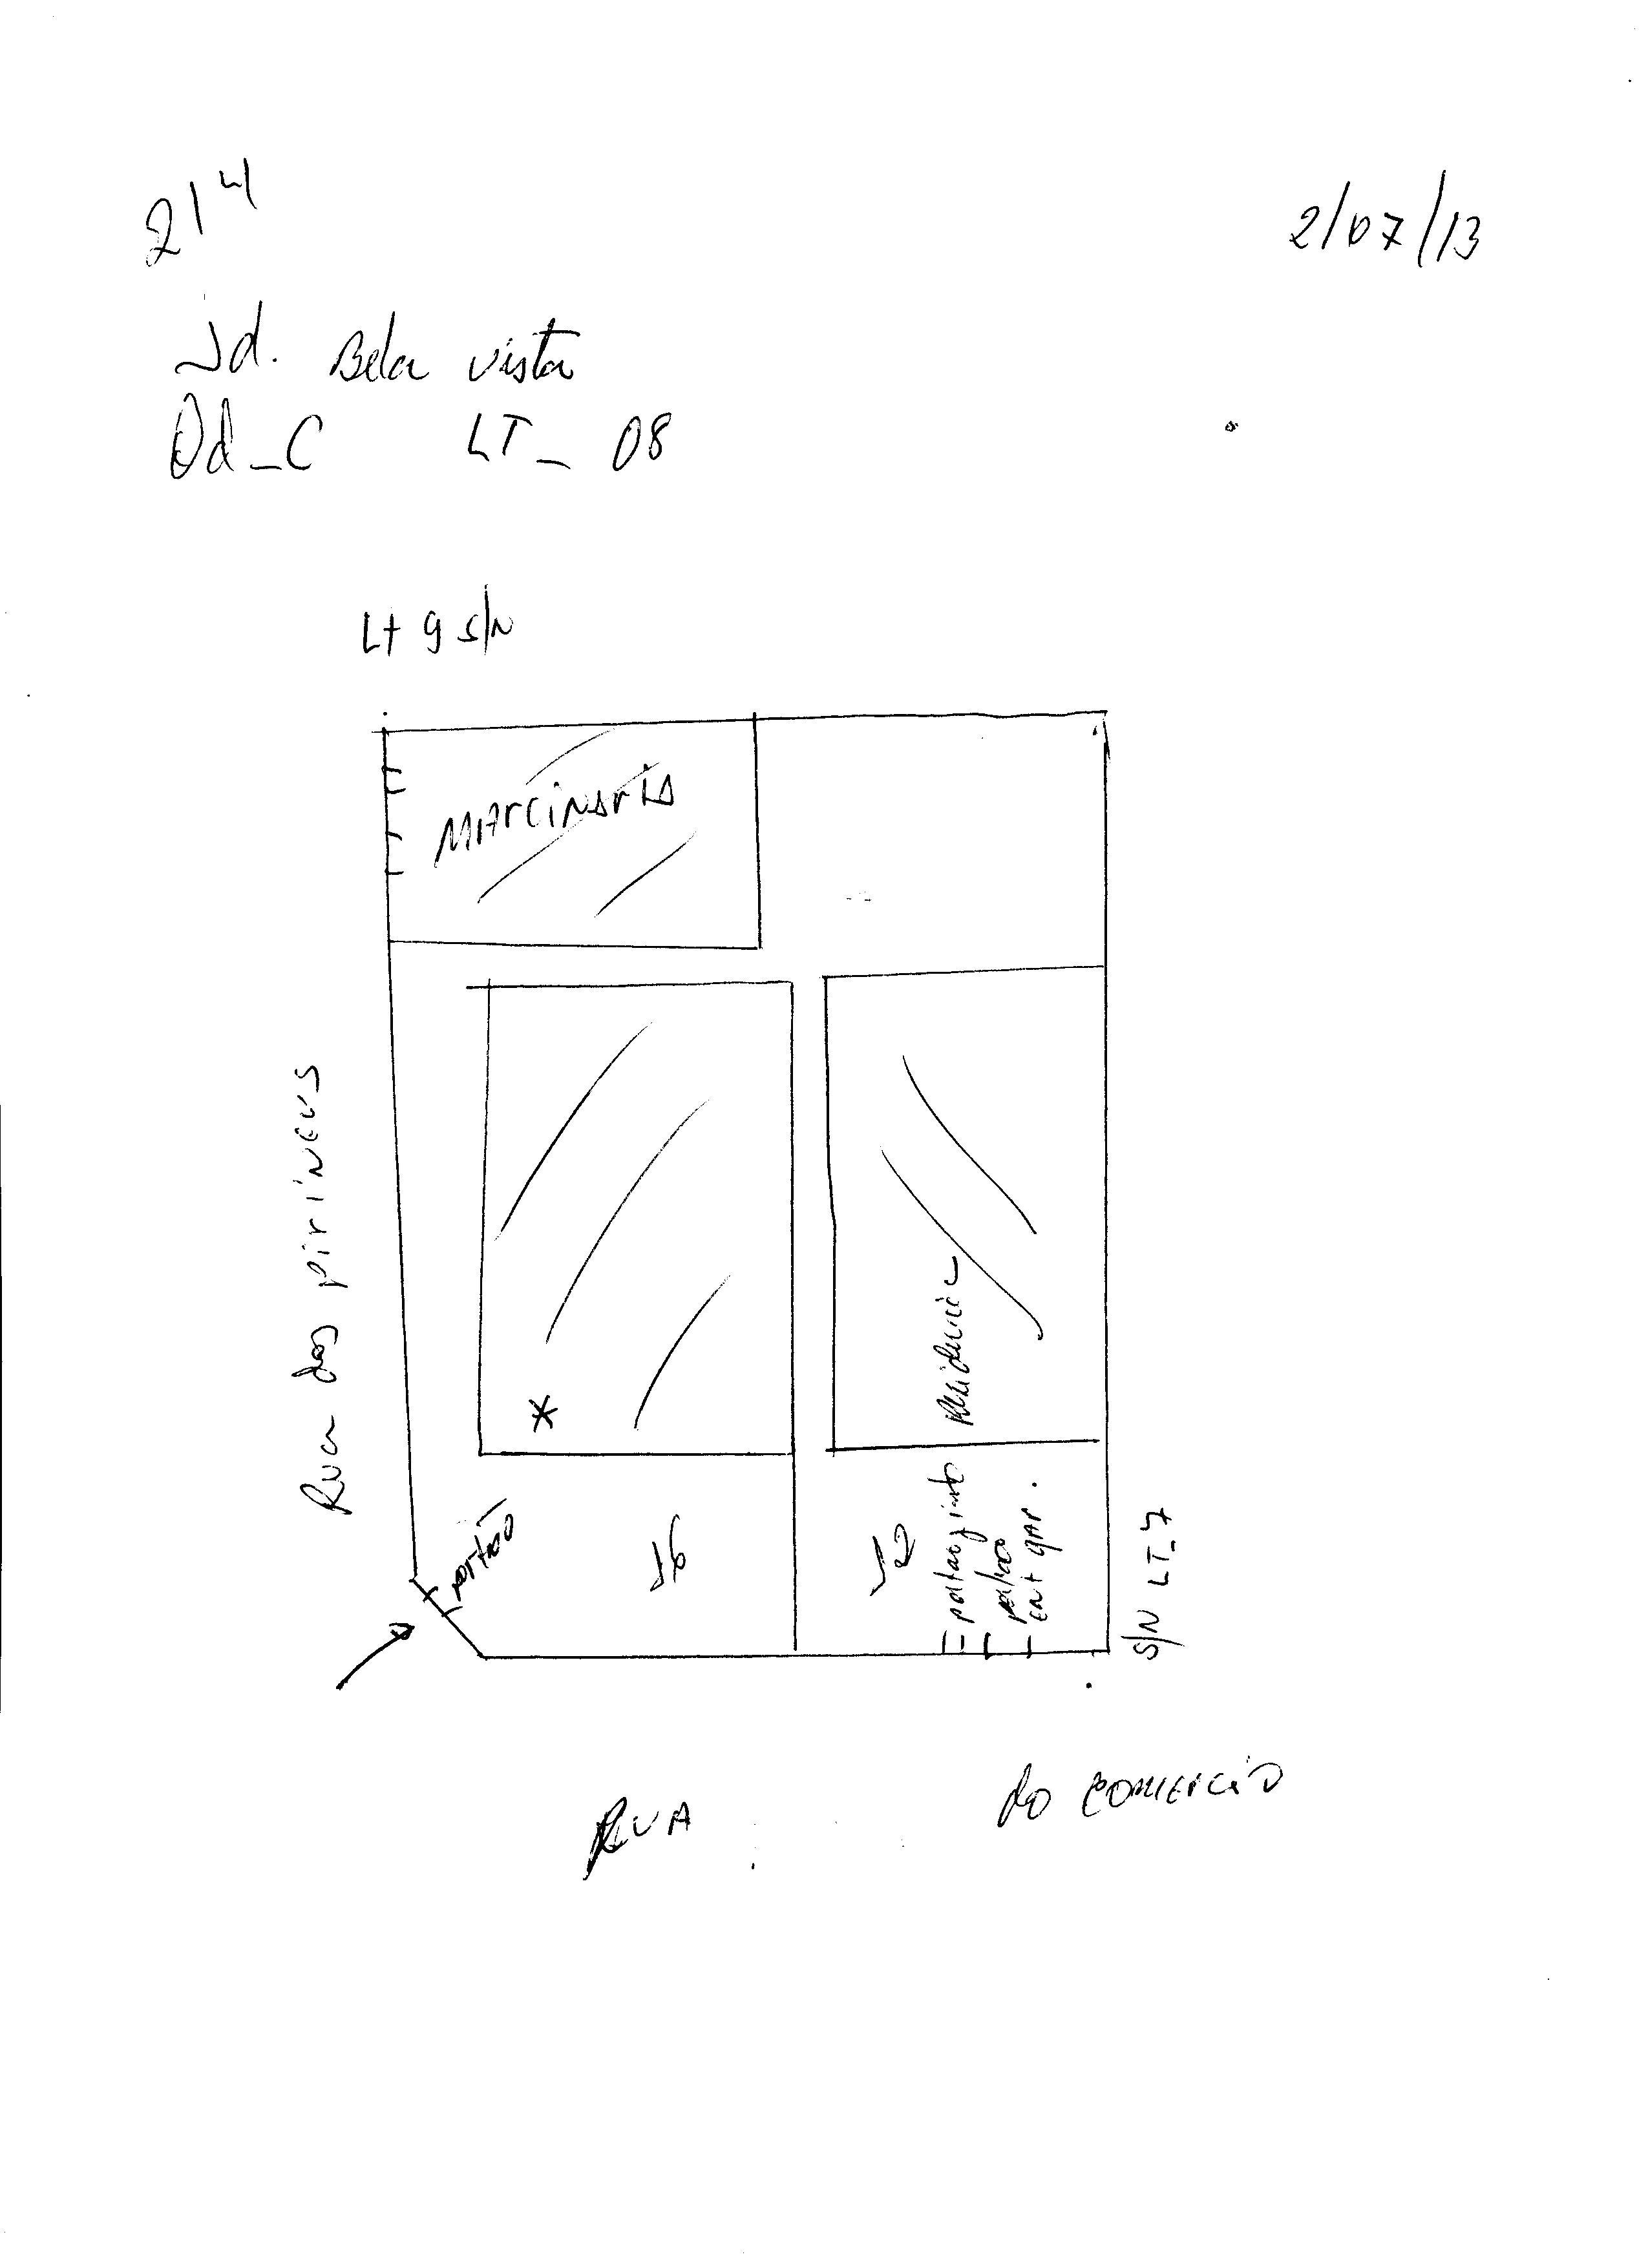 214
2/07/13
Jd. Bela Vista
Qd_C LT_ 08
Lt 9 s/N
MArciNAriA
Rua dos pirineus
Residencia
portão
16
portaozinho
portao
ent gar.
S/N LT_7
RUA do comercio